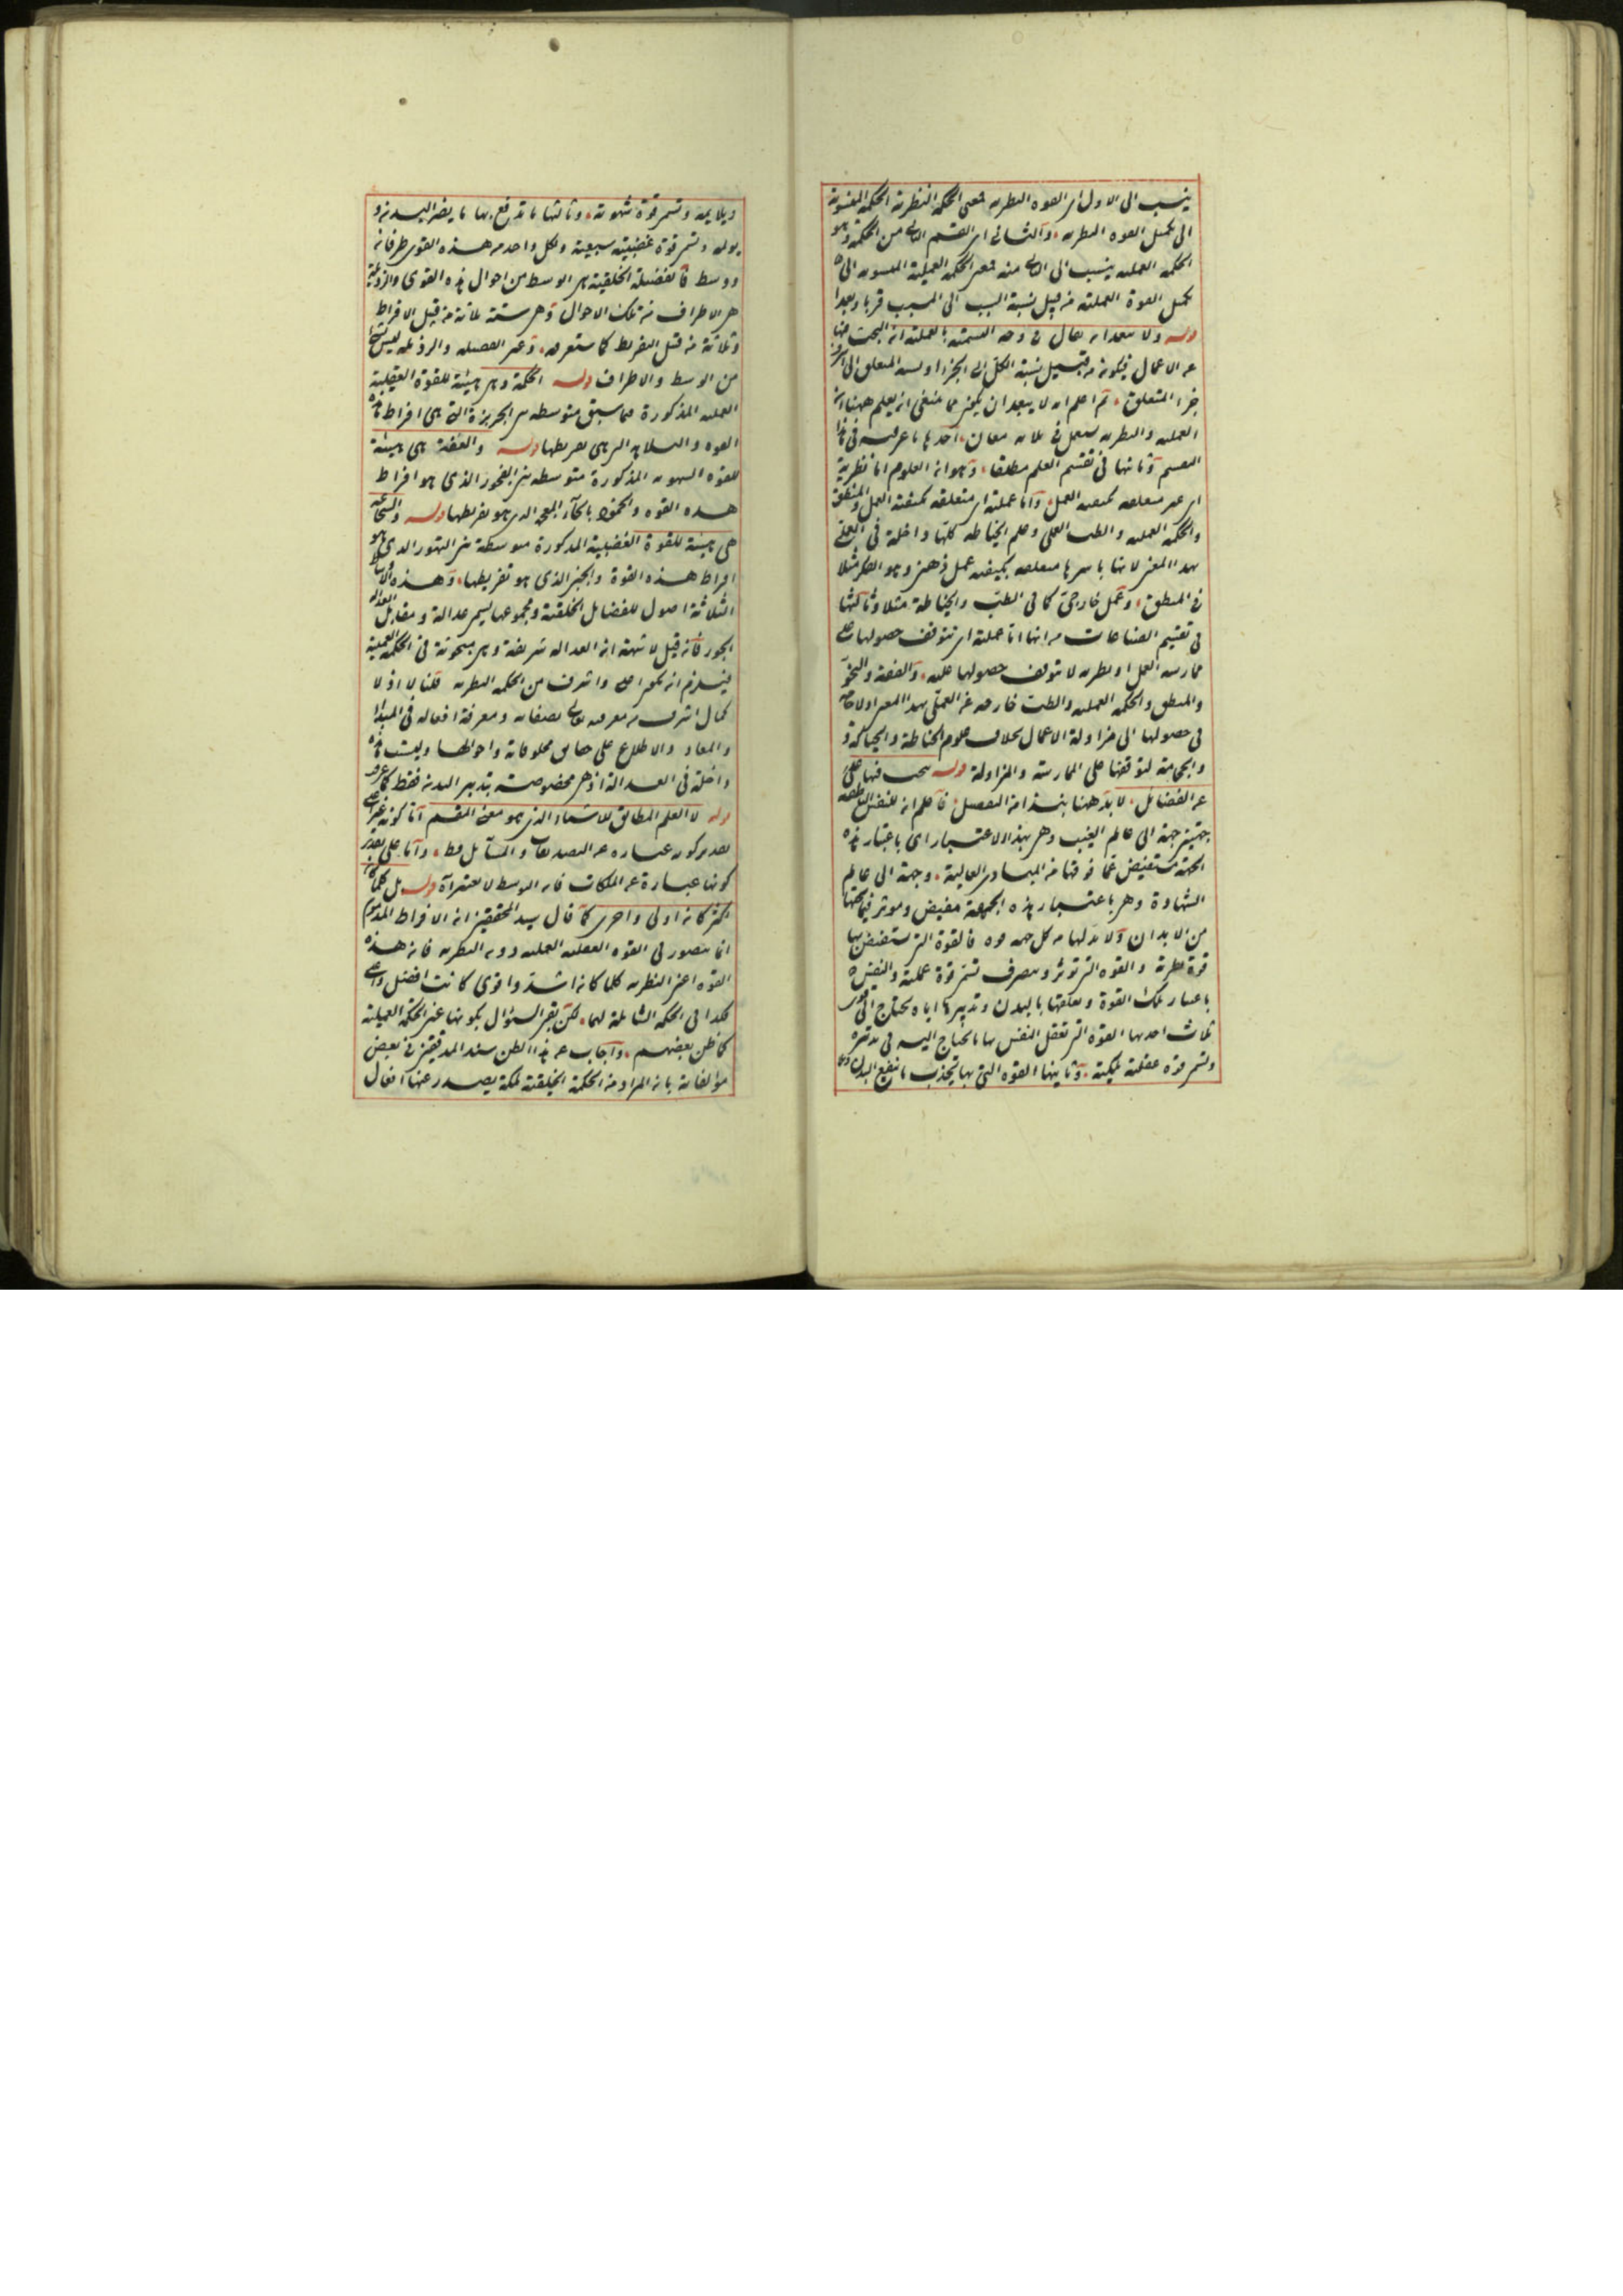 ينسب الى الاول اى القوه النظريه فمعنى الحكمة النظرية الحكمة المنسوبة
الى تكميل القوه النظريه والثانى اى القسم الثانى من الحكمة وهو
الحكمة العمليه ينسب الى الثانى منه فمعنى الحكمة العملية المنسوبه الى
تكميل القوة العملية من قبيل نسبة السبب الى المسبب قربا وبعدا
قوله ولا يبعد ان يقال فى وجه التسمية بالعملية ان البحث فيها
عن الاعمال فيكون من قبيل نسبة الكل الى الجزء او نسبة المتعلق الى
جزء المتعلق ثم اعلم انه لا يبعد ان يكون مما ينبغى ان يعلم ههنا ان
العمليه والنظريه يستعمل فى ثلاثه معان احدها ما عرفته فى هذا
التقسيم وثانيها فى تقسيم العلم مطلقا وهو ان العلوم اما نظرية
اى غير متعلقه بكيفيه العمل واما عملية اى متعلقه بكيفية العمل والمنطق
والحكمه العمليه والطب العملى وعلم الخياطه كلها داخلة فى العملى
بهذا المعنى لانها باسرها متعلقه بكيفيه عمل ذهنى وهو الفكر مثلا
فى المنطق وعمل خارجى كما فى الطب والخياطة مثلا وثالثها
فى تقسيم الصناعات من انها اما عملية اى تتوقف حصولها على
ممارسة العمل او نظريه لا يتوقف حصولها عليه والفقه والنحو
والمنطق والحكمه العمليه والطب خارجه عن العملى بهذا المعنى اذ لا حاجة
فى حصولها الى مزاولة الاعمال بخلاف علوم الخياطة والحياكة و
والحجامة لتوقفها على الممارسة والمزاولة قوله يبحث فيها
عن الفضائل لابد ههنا بنذا من التفصيل فاعلم ان للنفس الناطقه
جهتين جهة الى عالم الغيب وهى بهذا الاعتبار اى باعتبار هذه
الجهة مستفيض عما فوقها من المبادى العالية وجهة الى عالم
الشهادة وهى باعتبار هذه الجهة مفيض وموثر فيما تحتها
من الابدان ولا بد لها من كل جهه قوه فالقوة التى تستفيض بها
قوة نظرية والقوه التى توثر وتتصرف تسمى قوة عملية والنفس
باعتبار تلك القوة وتعلقها بالبدن وتدبيرها اياه تحتاج الى قوى
ثلاث احديها القوة التى تعقل النفس بها ما تحتاج اليه فى تدبيره
وتسمى قوة عقلية ملكية وثانيتها القوه التى بها تجذب ما ينفع البدن
ويلايمه وتسمى قوة شهوية وثالثها ما تدفع بها ما يضر البدن و
يولمه وتسمى قوة غضبية سبعية ولكل واحد من هذه القوى طرفان
ووسط فالفضيلة الخلقية هى الوسط من احوال هذه القوى والرذيلة
هى الاطراف من تلك الاحوال وهى ستة ثلاثة من قبيل الافراط
وثلاثة من قبيل التفريط كما ستعرفه وغير الفضيله والرذيله ليس
من الوسط والاطراف قوله الحكمة وهى هيئة للقوة العقلية
العمليه المذكورة مما سبق متوسطه بين الجربزة التى هى افراط هذه
القوه والبلاهة التى هى تفريطها قوله والعفة هى هيئة
للقوه الشهويه المذكورة متوسطه بين الفجور الذى هو افراط
هذه القوه والخمود بالخاء المعجمه الذى هو تفريطها قوله والشجاعه
هى هيئة للقوة الغضبية المذكورة متوسطة بين التهور الذى هو
افراط هذه القوة والجبن الذى هو تفريطها وهذه الاوساط
الثلاثة اصول الفضايل الخلقية ومجموعها يسمى عدالة ومقابل العداله
الجور فان قيل لا شبهة ان العداله شريفة وهى مبحوثة فى الحكمه العملية
فيلزم ان تكون اعلى واشرف من الحكمه النظريه قلنا لا اذ لا
كمال اشرف من معرفه تعالى بصفاته ومعرفة افعاله فى المبدا
والمعاد والاطلاع على حقايق مخلوقاته واحوالها وليست هذه
داخلة فى العدالة اذ هى مخصوصة بتدبير البدن فقط كما عرف
قوله لا العلم المطابق للاشياء الذى هو معنى المقسم اما كونه غير
تقدير كونه عباره عن التصديقات والمسايل فقط واما على تقدير
كونها عبارة عن الملكات فان الوسط لا يعتبر قوله بل كلما كان
اكثر كان اولى واحرى كما قال سيد المحققين ان الافراط المذموم
انما يتصور فى القوه العقليه العمليه دون النظريه فان هذه
القوه اعنى النظريه كلما كان اشد واقوى كانت افضل واعلى
هكذا فى الحكمه الشاملة لهما لكن بقى السؤال بكونها عين الحكمة العملية
كما ظن بعضهم واجاب عن هذا الظن سيد المدققين فى بعض
مؤلفاته بان المراد من الحكمة الخلقية ملكة يصدر عنها افعال